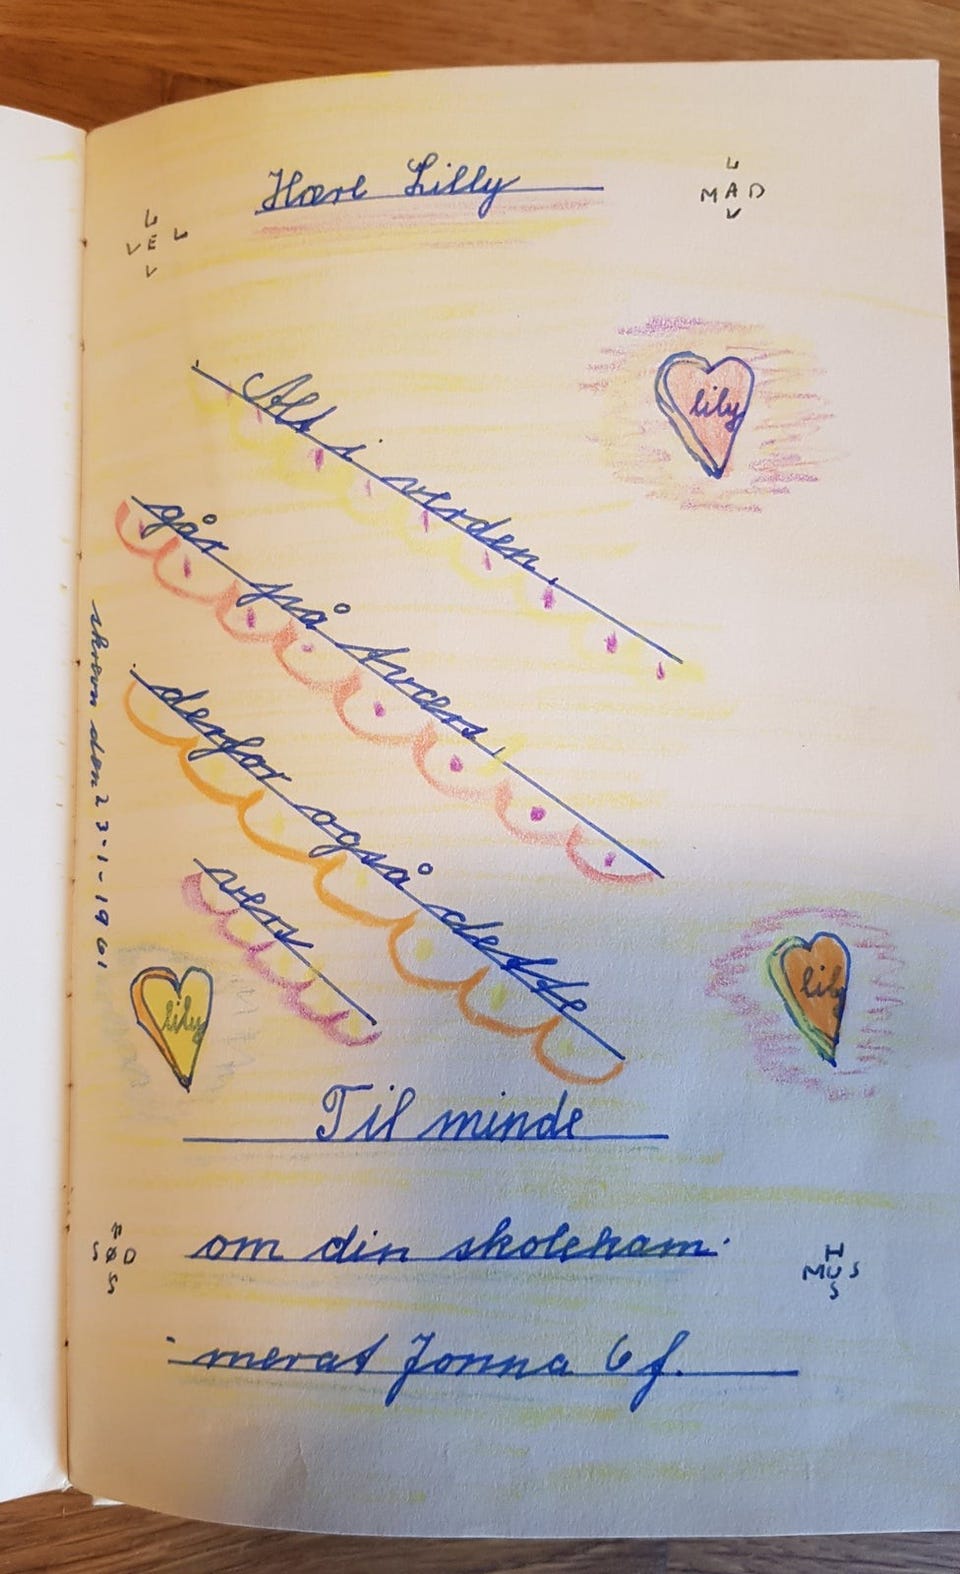 Kære Lilly
L
MAD
V
L
VEL
V
lily
Alt i verden,
går på tværs,
derfor også dette
vers
skrevn den 23-1-1961
lily
lily
Til minde
F
SØD
S
om din skolekam-
H
MUS
S
-merat Jonna 6 f.